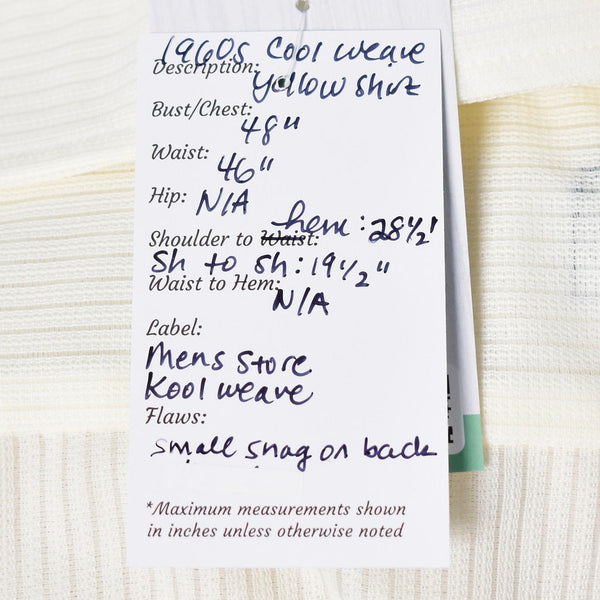 1960s Cool weave
Description:
yellow shirt
Bust/Chest:
48"
Waist:
46"
Hip: N/A
hem: 28½"
Shoulder to Waist:
Sh to sh: 19½"
Waist to Hem:
N/A
Label:
Mens Store
Kool weave
Flaws:
small snag on back
*Maximum measurements shown
in inches unless otherwise noted